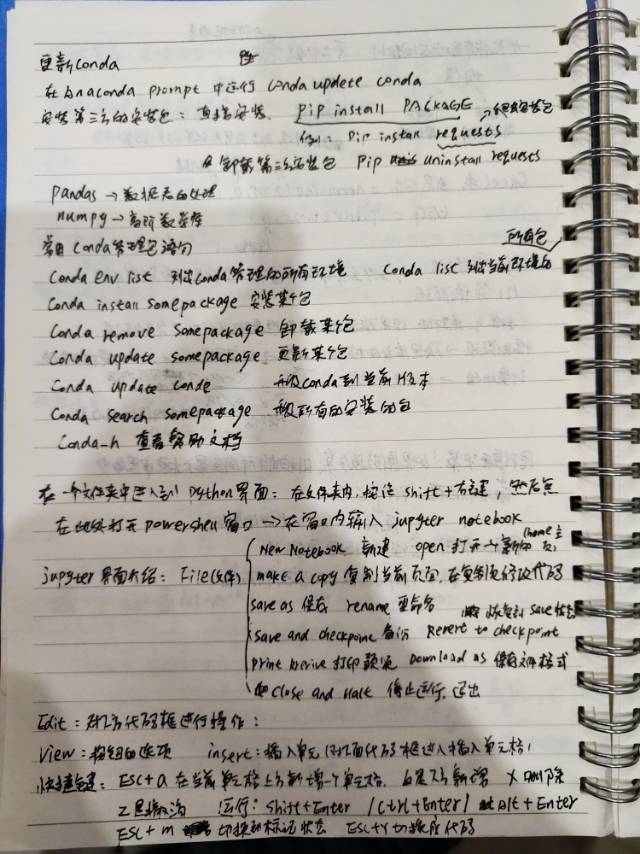 更新Conda
在Anaconda prompt 中运行 Conda updete conda
安装第三方的安装包: 直接安装. PiP install PACKAGE
例: Pip install requests
卸载第三方安装包 Pip uninstall requests
pandas → 数据表的处理
numpy → 高阶数学库
常用 Conda管理包语句 所有包
Conda env list 列出Conda管理的所有环境 Conda list 列出当前环境的
Conda install somepackage 安装某个包
Conda remove somepackage 卸载某个包
Conda update somepackage 更新某个包
Conda update conde 升级conda到当前版本
Conda search somepackage 所有的安装的包
Conda-h 查看帮助文档
在一个文件夹中进入到python界面: 在文件夹内, 按住 shift+右键, 然后点
在此处打开powershell窗口 → 在窗口内输入 jupyter notebook
New Notebook 新建 open 打开一个新的 (home主页)
jupyter 界面介绍: File(文件) make a copy 复制当前页面, 在复制页修改代码
save as 保存 rename 重命名 恢复到 save状态
save and checkpoint 备份 Revert to checkpoint
print 打印预览 Download as 保存文件格式
Close and Halt 停止运行, 退出
Edit: 对代码框进行操作:
View: 按钮的选项 insert: 插入单元
快捷键: ESC+a 在当前单元格上方新增一个单元格. b是下方新增 X 删除
Z是撤消 运行: Shift+Enter / Ctrl+Enter / Alt + Enter
ESC + m 切换到标记状态 ESC+Y 切换成代码